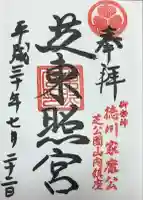 奉拝
御祭神
徳川家康公
芝公園山内鎮座
芝東照宮
平成三十年七月二十二日